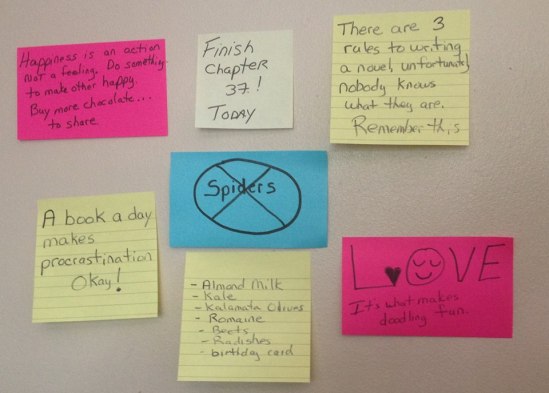 Happiness is an action
not a feeling. Do something
to make other happy.
Buy more chocolate...
to share
Finish
Chapter
37!
Today
There are 3
rules to writing
a novel, unfortunately
nobody knows
what they are.
Remember this
Spiders
A book a day
makes
procrastination
Okay!
- Almond Milk
- Kale
- Kalamata Olives
- Romaine
- Beets
- Radishes
- birthday card
LOVE
It's what makes
doodling fun.